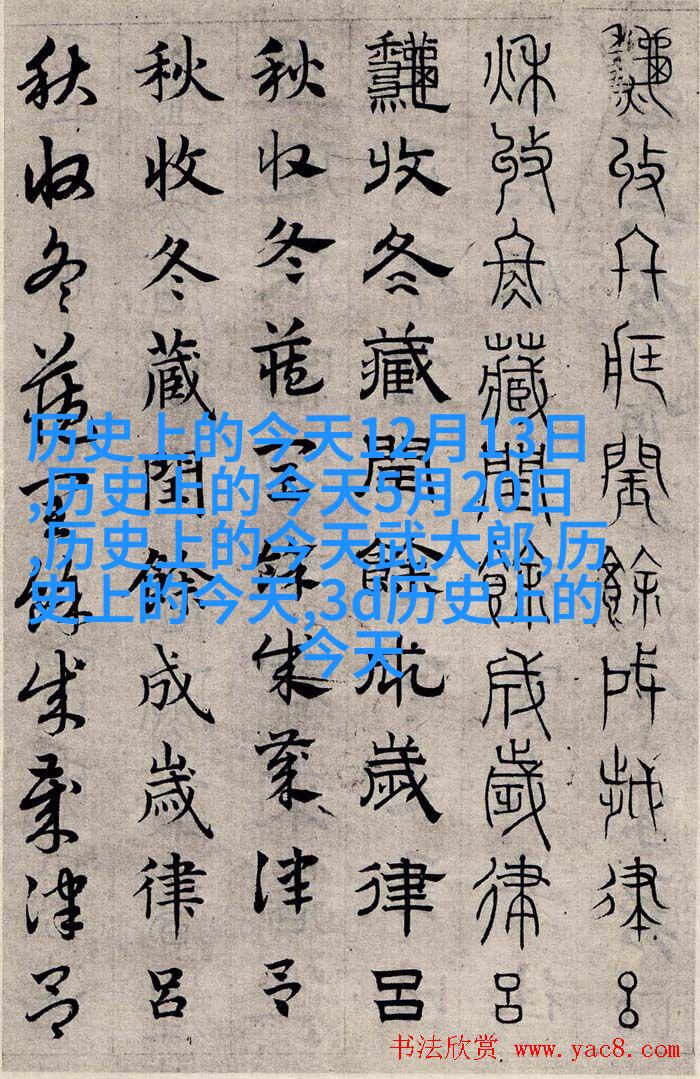 龝收冬藏閏餘成歲律呂
秌收冬藏閏餘成歲律呂
龝收冬藏閏餘成歲律呂
秋收冬藏閏餘成歲律呂
秋收冬藏閏餘成歲律呂
秋收冬藏閏餘成歲律呂
历史上的今天12月13日
,历史上的今天5月20日
,历史上的今天武大郎,历
史上的今天,3d历史上的
今天
书法欣赏 www.yac8.com